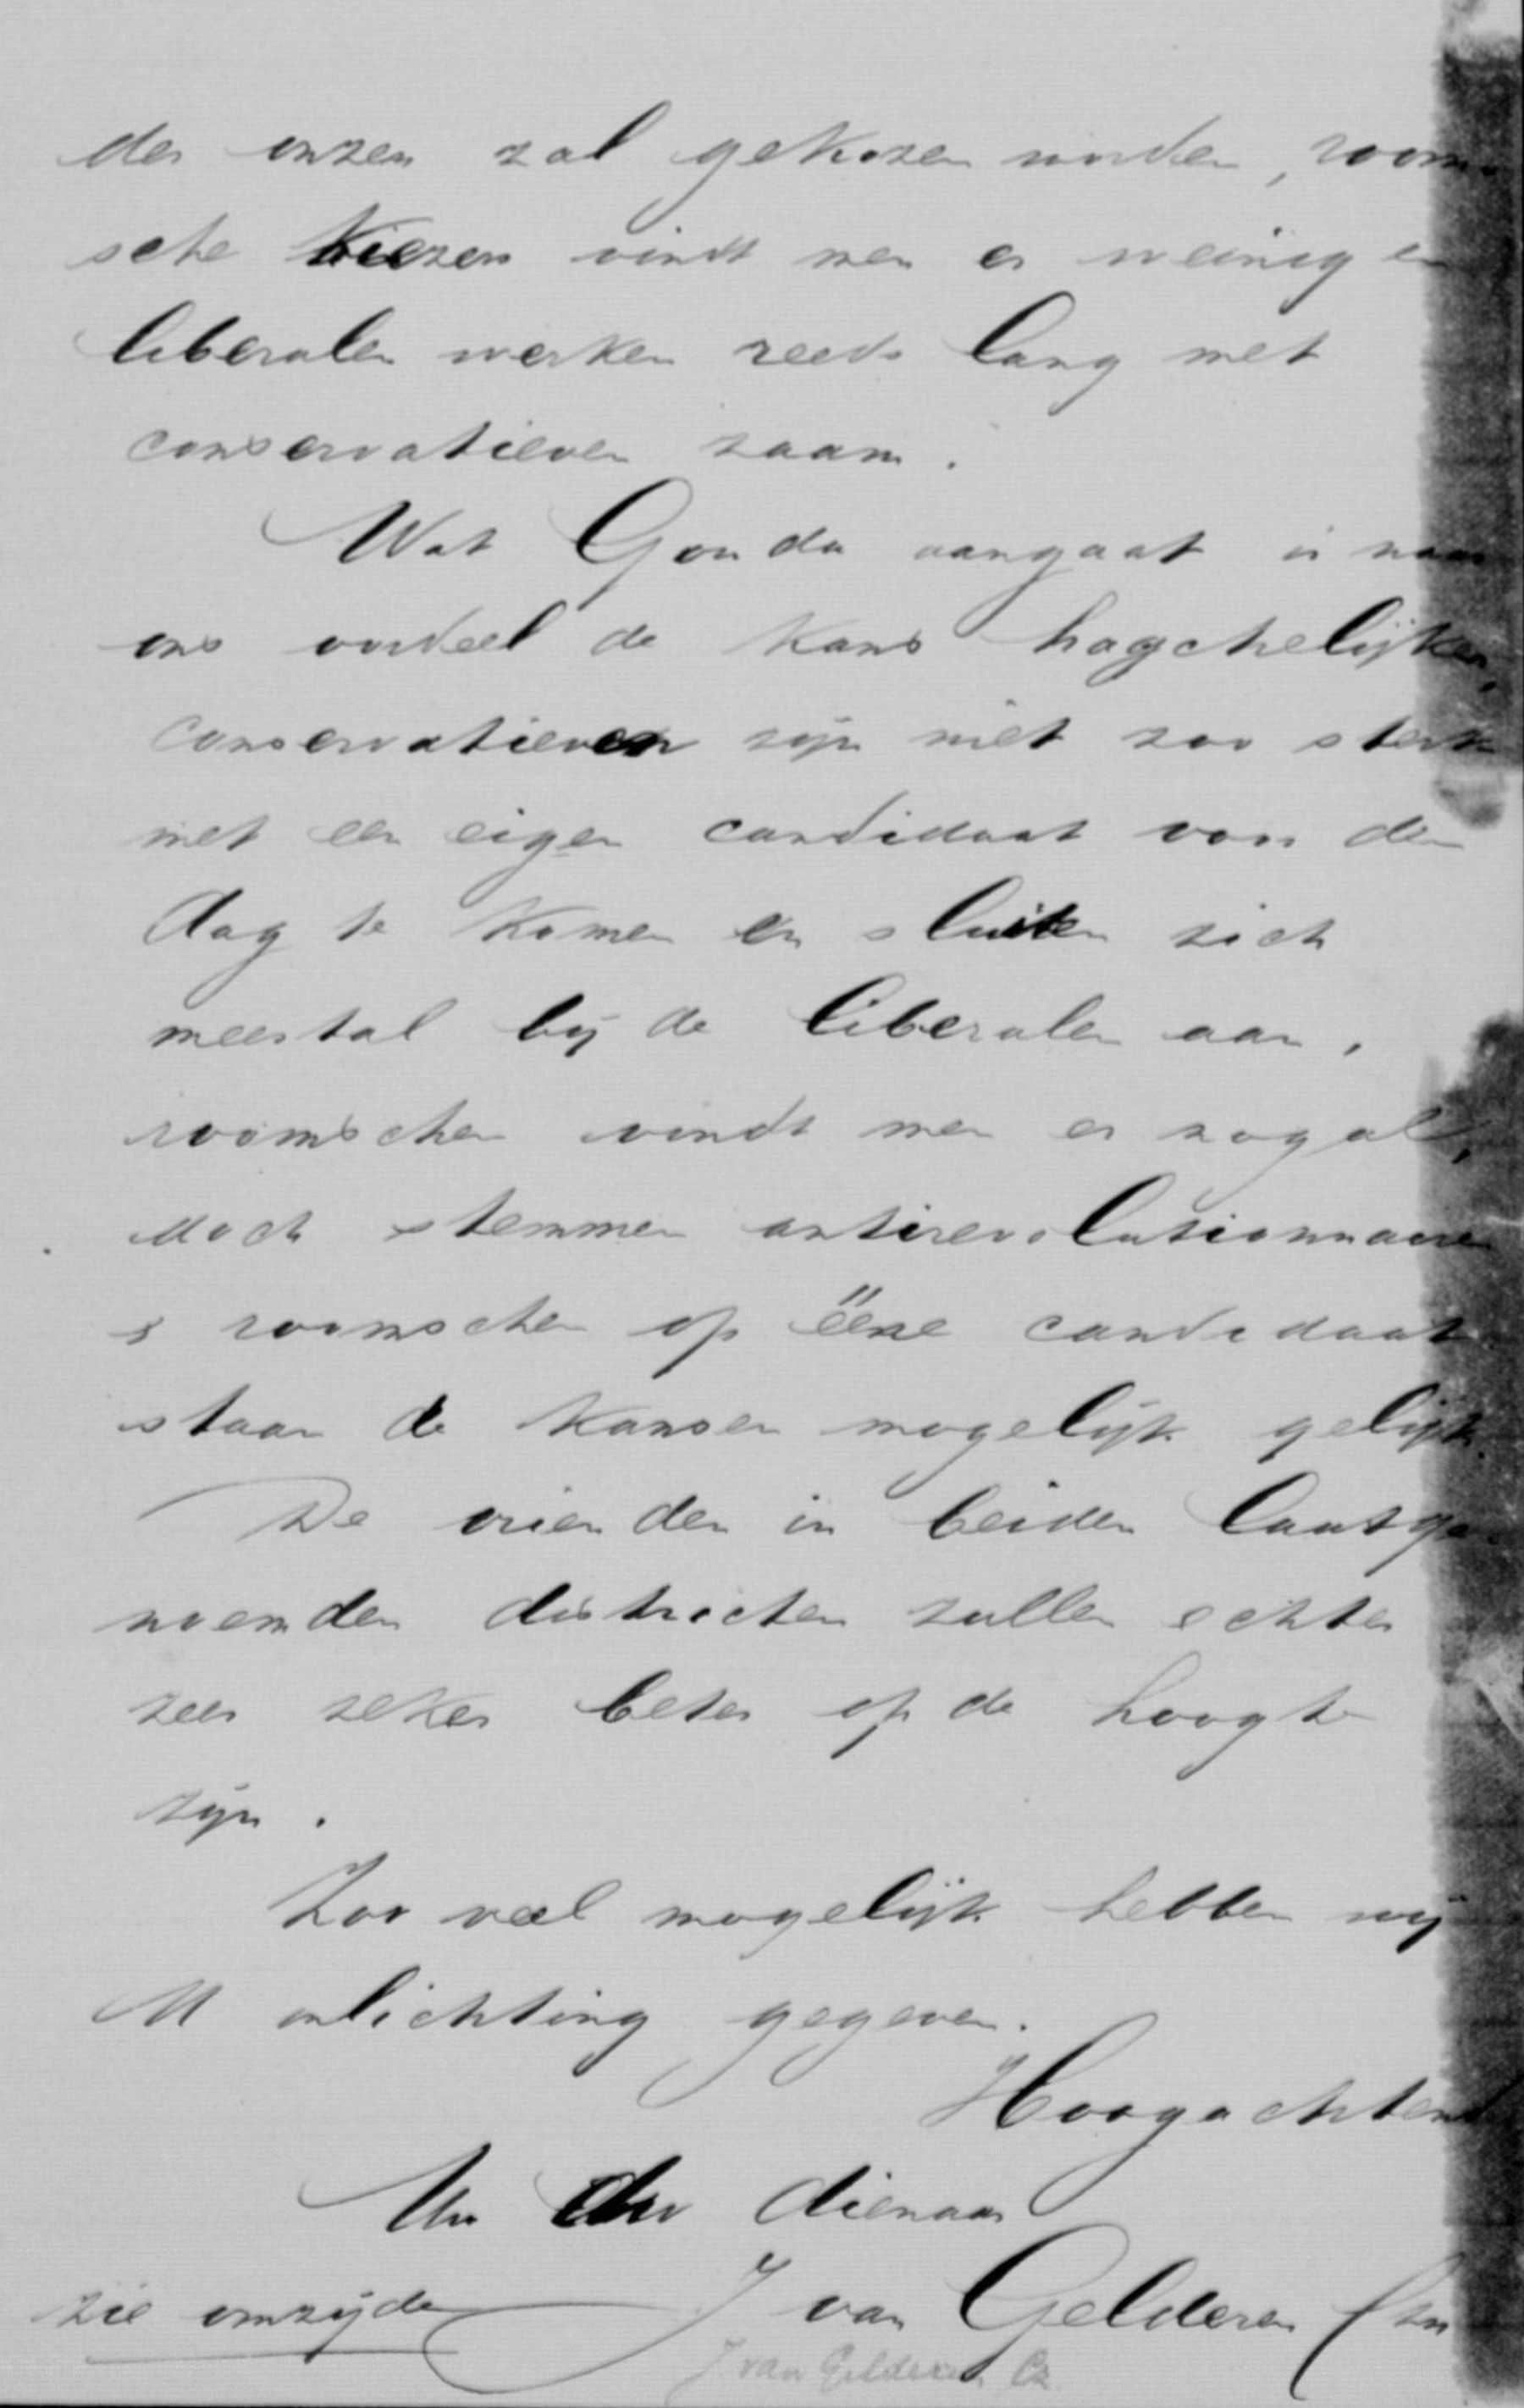 der onzen zal gekozen worden, room-
sche kiezers vindt men er weinig en
liberalen werken reeds lang met
conservatieven zaam.
Wat Gouda aangaat is naar
ons oordeel de kans hagchelijker,
conservatieven zijn niet zoo sterk
met een eigen candidaat voor den
dag te komen en sluiten zich
meestal bij de liberalen aan,
roomschen vindt men er nogal,
doch stemmen antirevolutionnairen
& roomschen op ééne candidaat
staan de kansen mogelijk gelijk.
De vrienden in beiden laatstge-
noemden districten zullen echter
zeer zeker beter op de hoogte
zijn.
Zoo veel mogelijk hebben wij
U inlichting gegeven.
Hoogachtend
Uw dw dienaar
zie omzijde J van Gelderen Czn
J. van Gelderen Cz.